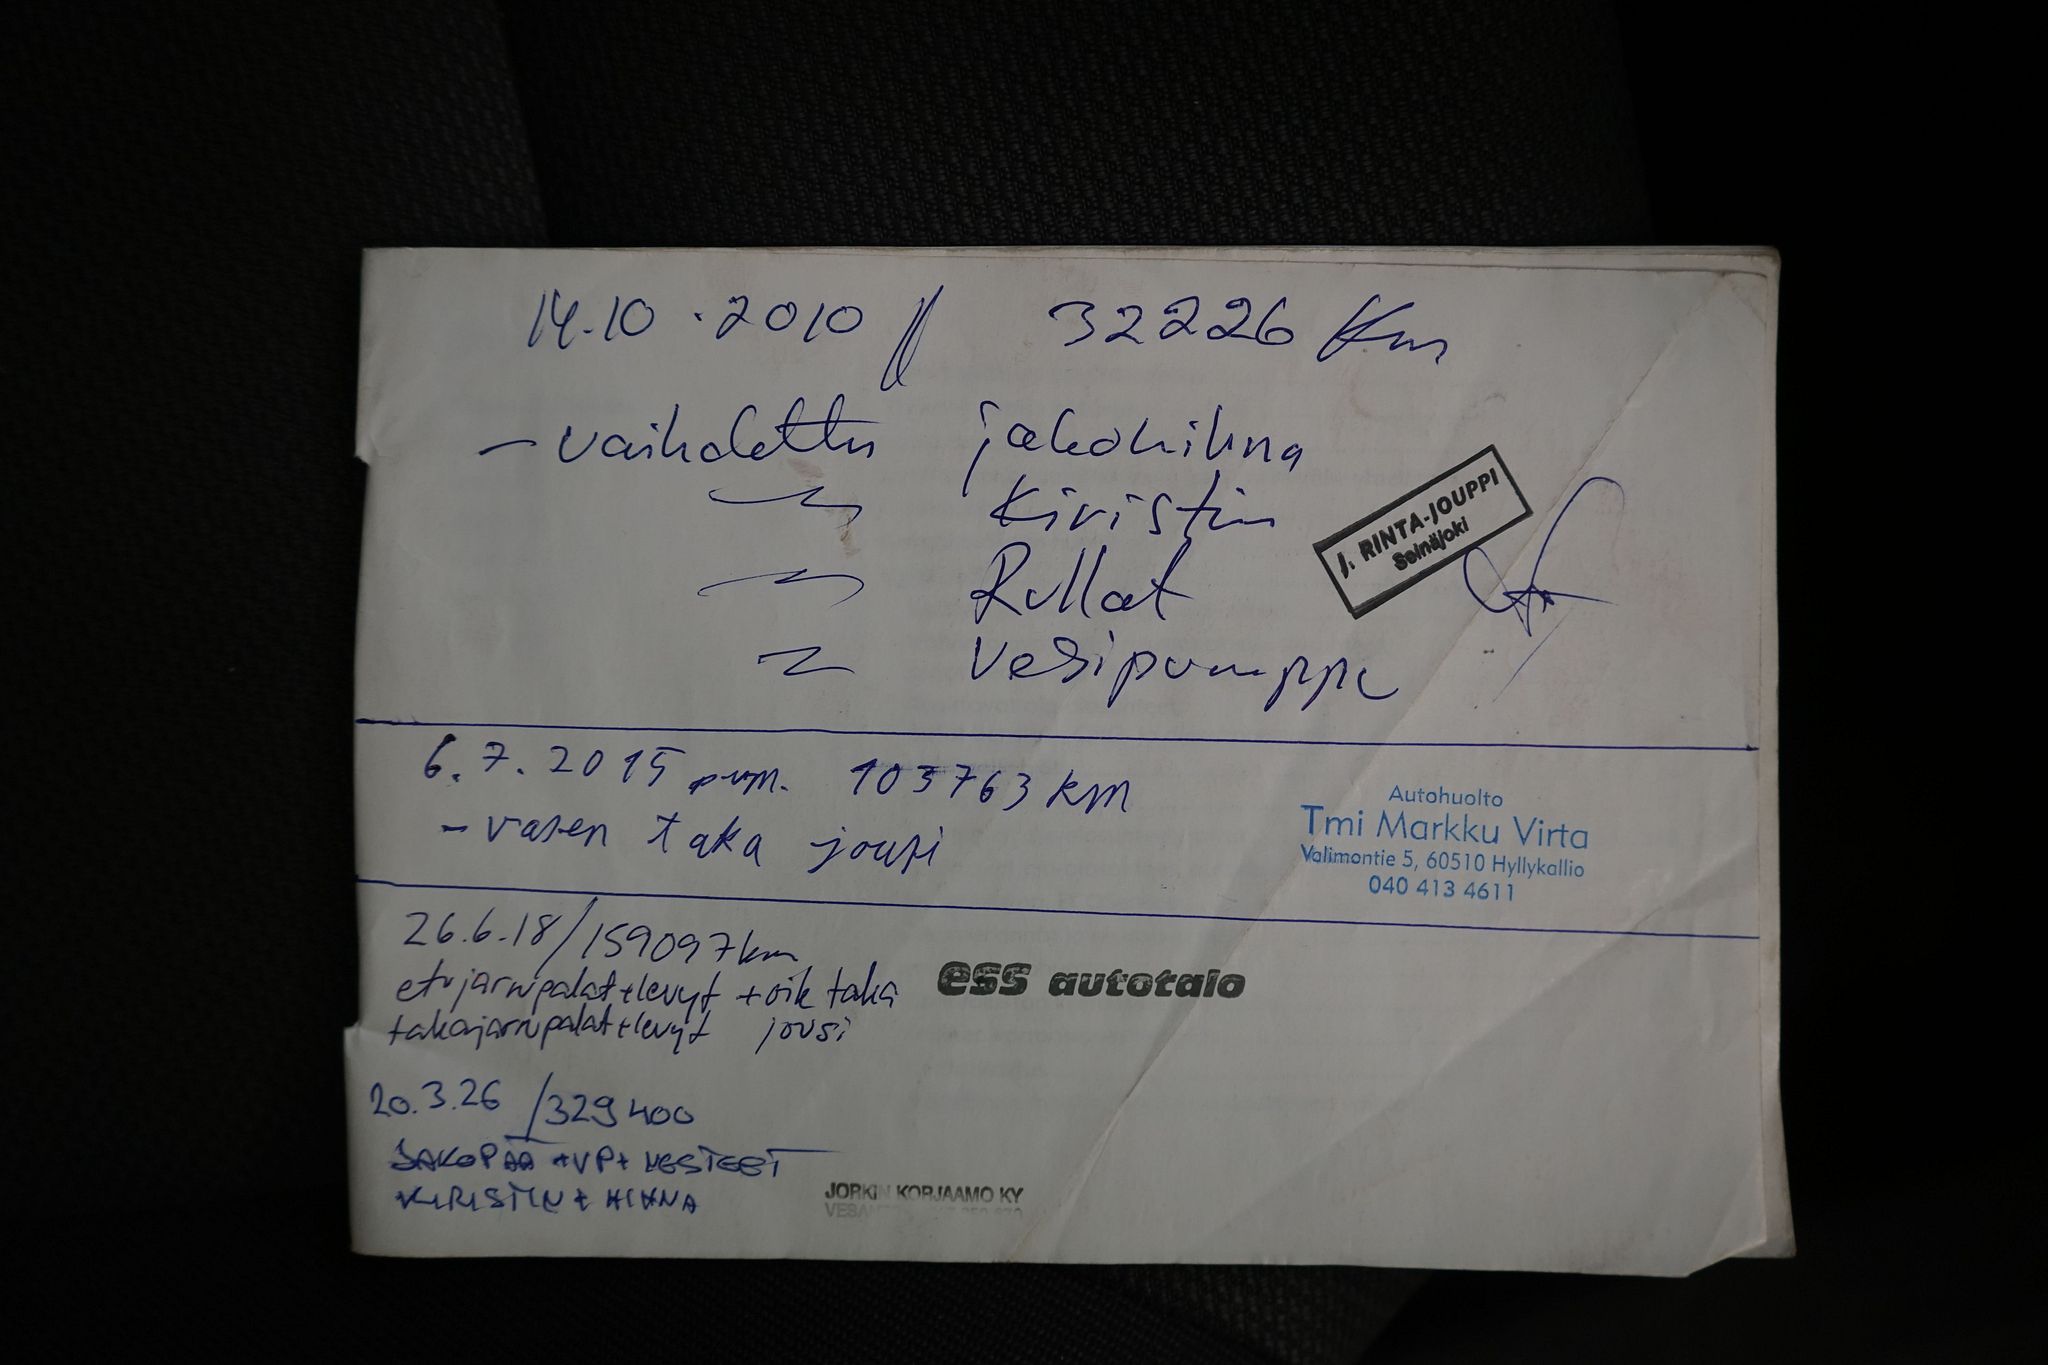 14.10.2010 // 32226 Km
- vaihdettu jakohihna
~ Kiristin
~ Rullat
~ Vesipumppu
J. RINTA-JOUPPI
Seinäjoki
6.7.2015 pvm. 103763 km
- vasen taka jousi
Autohuolto
Tmi Markku Virta
Valimontie 5, 60510 Hyllykallio
040 413 4611
26.6.18/159097km
etujarrupalat+levyt +oik taka
takajarrupalat+levyt jousi
ess autotalo
20.3.26 /329400
JAKOPÄÄ +VP+ NESTEET
KIRISTIN + HIHNA
JORKIN KORJAAMO KY